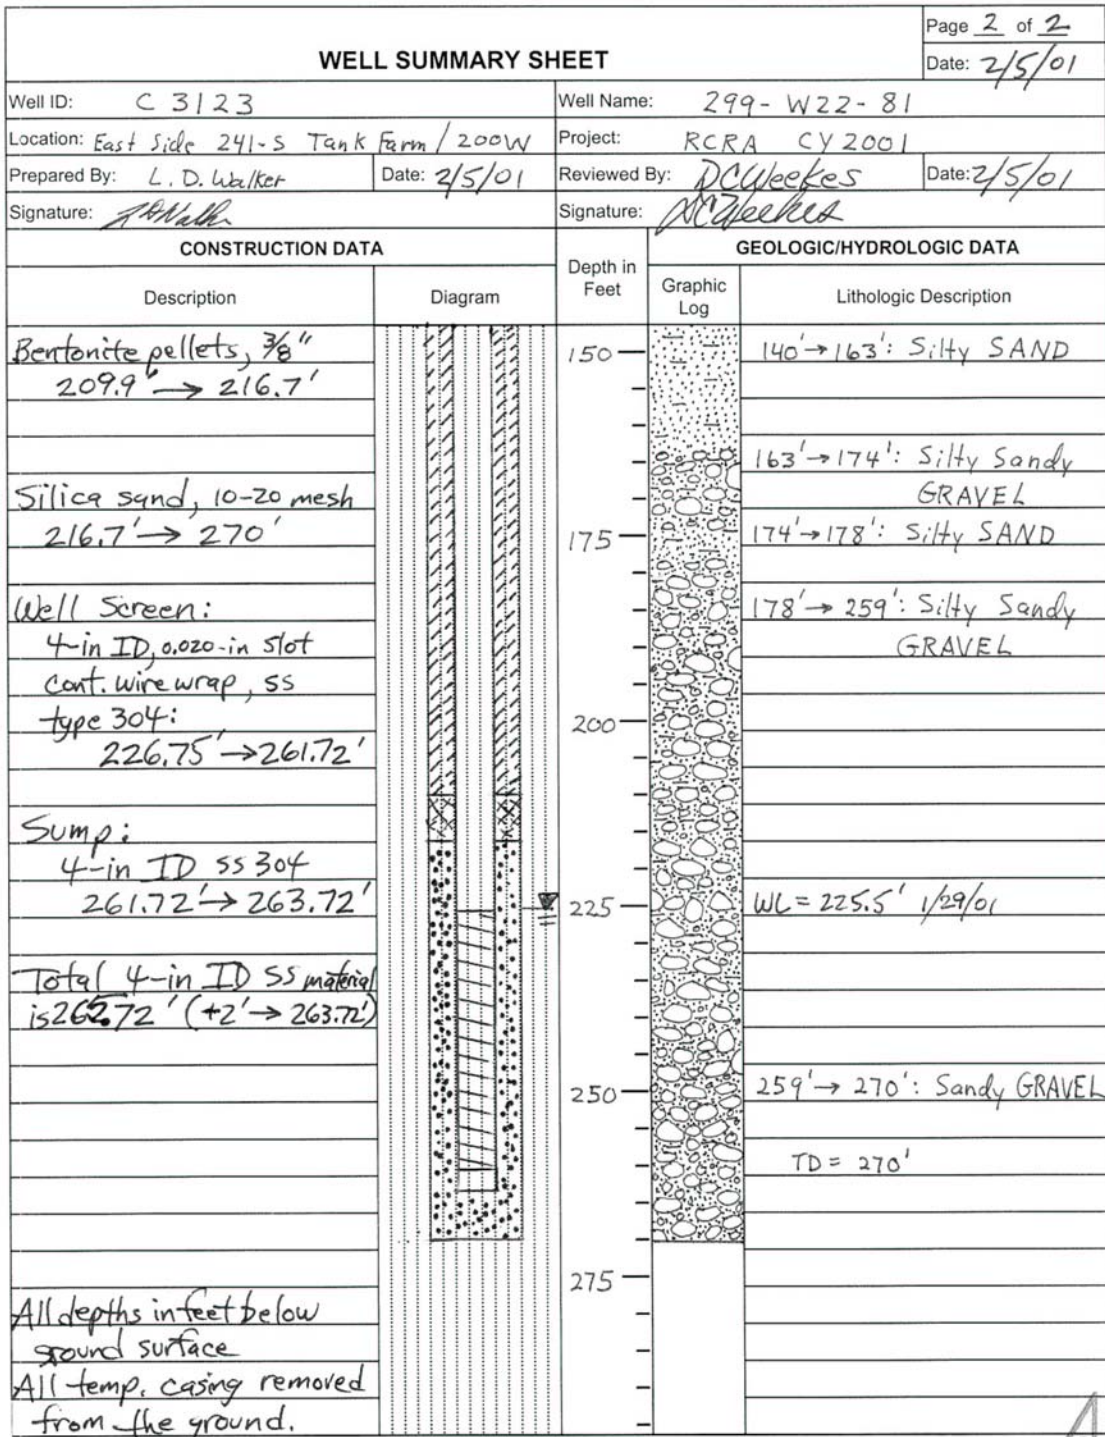 Page 2 of 2
WELL SUMMARY SHEET
Date: 2/5/01
Well ID: C3123
Well Name: 299-W22-81
Location: East Side 241-S Tank Farm / 200W
Project: RCRA CY2001
Prepared By: L. D. Walker
Date: 2/5/01
Reviewed By: DC Weekes
Date: 2/5/01
Signature: LD Walker
Signature: DC Weekes
CONSTRUCTION DATA
Depth in Feet
GEOLOGIC/HYDROLOGIC DATA
Description
Diagram
Graphic Log
Lithologic Description
Bentonite pellets, 3/8"
209.9' → 216.7'
Silica sand, 10-20 mesh
216.7' → 270'
Well Screen:
4-in ID, 0.020-in slot
cont. wire wrap, ss
type 304:
226.75' → 261.72'
Sump:
4-in ID ss 304
261.72' → 263.72'
Total 4-in ID SS material
is 262.72' (+2' → 263.72')
All depths in feet below
ground surface
All temp. casing removed
from the ground.
150
175
200
225
250
275
140' → 163': Silty SAND
163' → 174': Silty Sandy
GRAVEL
174' → 178': Silty SAND
178' → 259': Silty Sandy
GRAVEL
WL = 225.5' 1/29/01
259' → 270': Sandy GRAVEL
TD = 270'